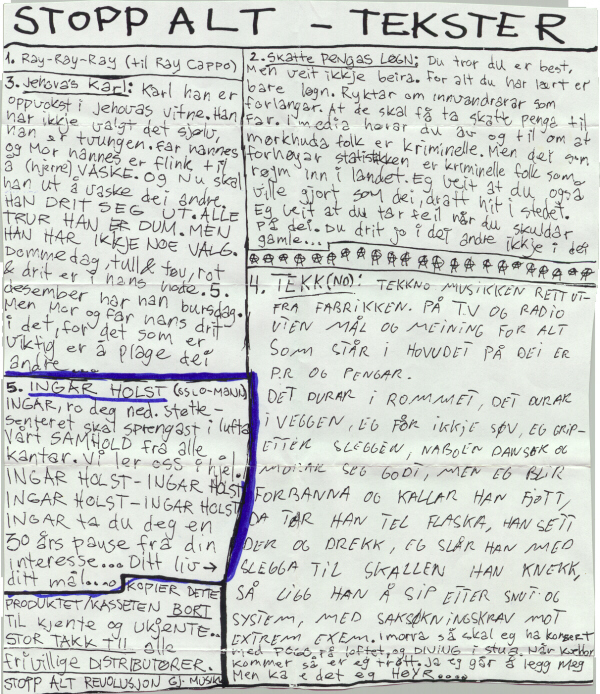 STOPP ALT - TEKSTER
1. Ray-Ray-Ray (til Ray Cappo)
2. Skatte Pengas Løgn; Du tror du er best,
Men veit ikkje beira. For alt du har lært er
bare løgn. Ryktar om innvandrarar som
forlangar. At de skal få ta skatte penga til
far. I media hørar du av og til om at
mørkhuda folk er kriminelle. Men det som
forhøyar statistikken er kriminelle folk som
røym inn i landet. Eg veit at du også
ville gjort som dei, dratt hit i stedet.
Eg veit at du tar feil når du skuldar
på dei. Du drit jo i dei andre ikkje i dei
gamle...
3. Jehova's Karl: Karl han er
oppvokst i Jehovas vitne. Han
har ikkje valgt det sjølv,
han er tvungen. Far hannes
og Mor hannes er flink til
å (hjerne) VASKE. Og Nu skal
han ut å vaske dei andre.
HAN DRIT SEG UT. ALLE
TRUR HAN ER DUM. MEN
HAN HAR IKKJE NOE VALG.
Dommedag, tull & tøv, rot
& drit er i hans hode. 5.
desember har han bursdag.
Men Mor og far hans drit
i det, for det som er
viktig er å plage dei
andre....
4. TEKK(NO): TEKKNO MUSIKKEN RETT UT-
FRA FABRIKKEN. PÅ T.V OG RADIO
UTEN MÅL OG MEINING FOR ALT
SOM STÅR I HOVUDET PÅ DEI ER
P.R OG PENGAR.
DET DURAR I ROMMET, DET DURAR
I VEGGEN, EG FÅR IKKJE SØV, EG GRIP-
ETTER SLEGGEN, NABOEN DANSAR OG
MORAR SEG GODT, MEN EG BLIR
FORBANNA OG KALLAR HAN FJOTT,
DA TAR HAN TEL FLASKA, HAN SETT
DER OG DREKK, EG SLÅR HAN MED
SLEGGA TIL SKALLEN HAN KNEKK,
SÅ LIGG HAN Å SIP ETTER SNUT OG
SYSTEM, MED SAKSØKNINGSKRAV MOT
EXTREM EXEM. Imorra så skal eg ha konsert
med POGO på loftet, og DIVING i stua. Når kvelden
kommer så er eg trøtt. Ja eg går å legg meg
Men ka e det eg HØYR....
5. INGAR HOLST (SSLO-MANN)
INGAR, ro deg ned. Støtte-
senteret skal sprengast i lufta
Vårt SAMHOLD frå alle
kantar. Vi ler oss i hjel.
INGAR HOLST - INGAR HOLST
INGAR HOLST - INGAR HOLST
INGAR ta du deg en
30 års pause frå din
interesse... Ditt liv →
ditt mål....
KOPIER DETTE
PRODUKTET/KASSETEN BORT
TIL kjente og ukjente..
STOR TAKK TIL alle
frivillige DISTRIBUTØRER.
STOPP ALT REVOLUSJON GJ. MUSIKK